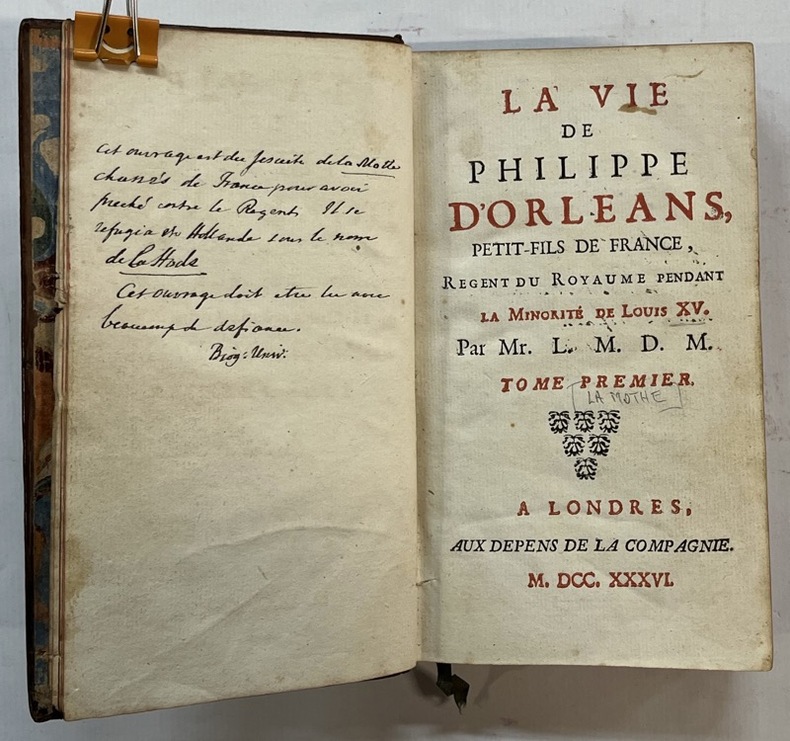 Cet ouvrage est du Jesuite de la Motte
chassé de France pour avoir
preché contre le Regent. Il se
refugia en Hollande sous le nom
de la Hode
Cet ouvrage doit etre lu avec
beaucoup de defiance.
Biog: Univ:
LA VIE
DE
PHILIPPE
D'ORLEANS,
PETIT-FILS DE FRANCE,
REGENT DU ROYAUME PENDANT
LA MINORITÉ DE LOUIS XV.
Par Mr. L. M. D. M.
TOME PREMIER.
[LA MOTHE]
A LONDRES,
AUX DEPENS DE LA COMPAGNIE.
M. DCC. XXXVI.